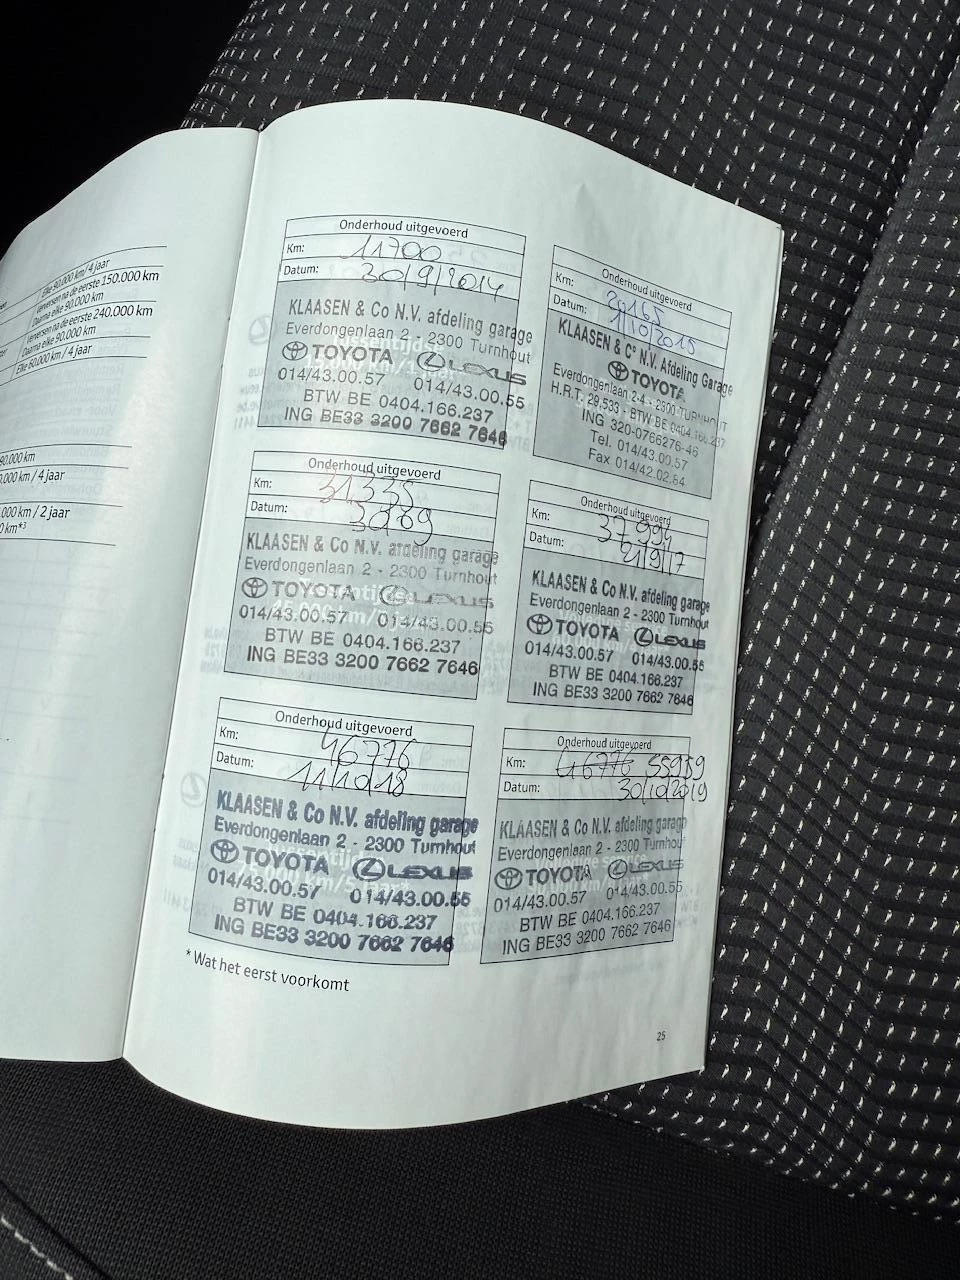 Elke 90.000 km/ 4 jaar
Verversen na de eerste 150.000 km
Daarna elke 90.000 km
Verversen na de eerste 240.000 km
Daarna elke 90.000 km
Elke 60.000 km / 4 jaar
90.000 km
000 km / 4 jaar
000 km / 2 jaar
0 km*³
Onderhoud uitgevoerd
Km: 11700
Datum: 30/9/2014
KLAASEN & Co N.V. afdeling garage
Everdongenlaan 2 - 2300 Turnhout
TOYOTA LEXUS
014/43.00.57 014/43.00.55
BTW BE 0404.166.237
ING BE33 3200 7662 7646
Onderhoud uitgevoerd
Km: 20165
Datum: 1/10/2015
KLAASEN & C° N.V. Afdeling Garage
TOYOTA
Everdongenlaan 2-4 - 2300 TURNHOUT
H.R.T. 29.533 - BTW BE 0404.166.237
ING 320-0766276-46
Tel. 014/43.00.57
Fax 014/42.02.84
Onderhoud uitgevoerd
Km: 31.335
Datum:
KLAASEN & Co N.V. afdeling garage
Everdongenlaan 2 - 2300 Turnhout
TOYOTA LEXUS
014/43.00.57 014/43.00.55
BTW BE 0404.166.237
ING BE33 3200 7662 7646
Onderhoud uitgevoerd
Km: 37994
Datum: 21/9/17
KLAASEN & Co N.V. afdeling garage
Everdongenlaan 2 - 2300 Turnhout
TOYOTA LEXUS
014/43.00.57 014/43.00.55
BTW BE 0404.166.237
ING BE33 3200 7662 7646
Onderhoud uitgevoerd
Km: 46776
Datum: 11/10/18
KLAASEN & Co N.V. afdeling garage
Everdongenlaan 2 - 2300 Turnhout
TOYOTA LEXUS
014/43.00.57 014/43.00.55
BTW BE 0404.166.237
ING BE33 3200 7662 7646
Onderhoud uitgevoerd
Km: 46776 55959
Datum: 30/10/2019
KLAASEN & Co N.V. afdeling garage
Everdongenlaan 2 - 2300 Turnhout
TOYOTA LEXUS
014/43.00.57 014/43.00.55
BTW BE 0404.166.237
ING BE33 3200 7662 7646
* Wat het eerst voorkomt
25